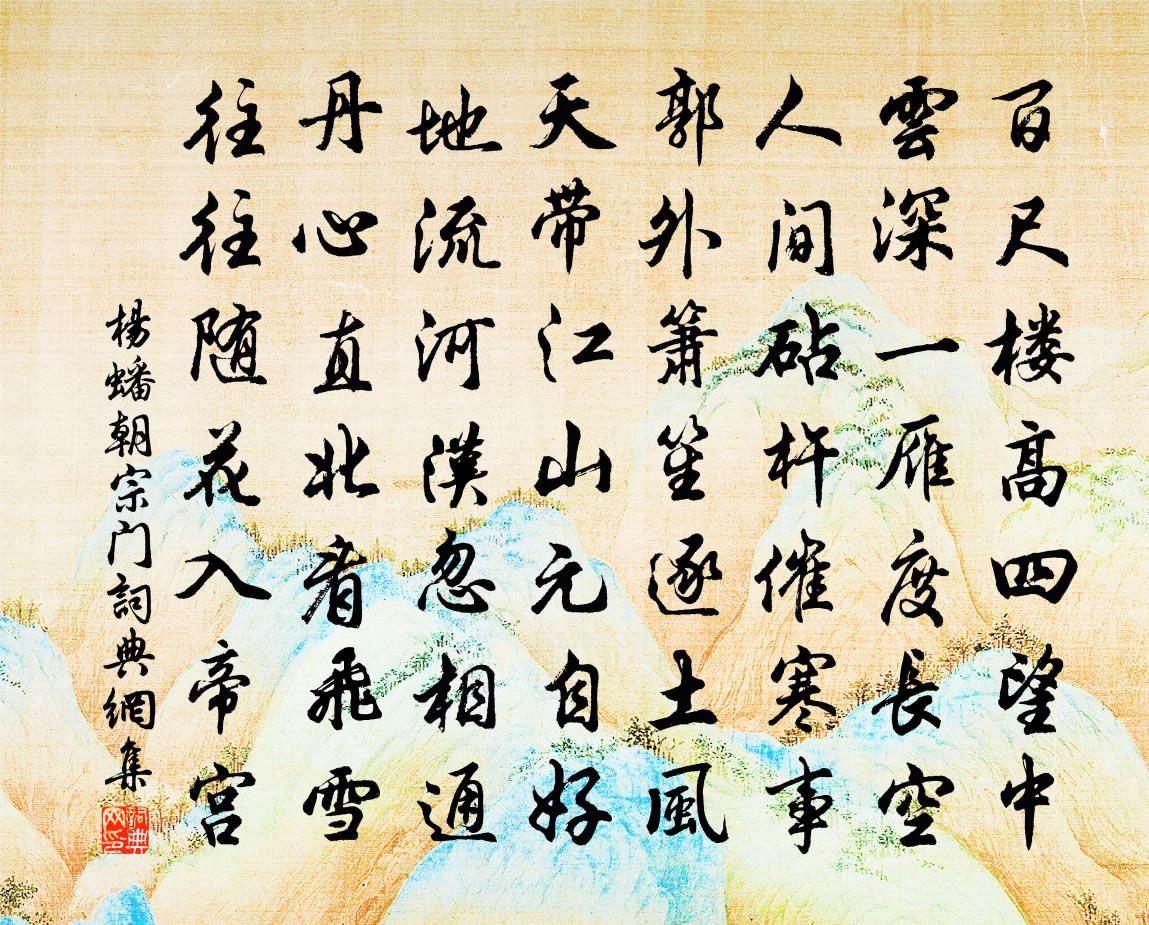 百尺楼高四望中
雲深一雁度長空
人间砧杵催寒事
郭外箫笙逐土風
天带江山元自好
地流河漢忽相通
丹心直北看飛雪
往往随花入帝宫
楊蟠朝宗门詞典網集